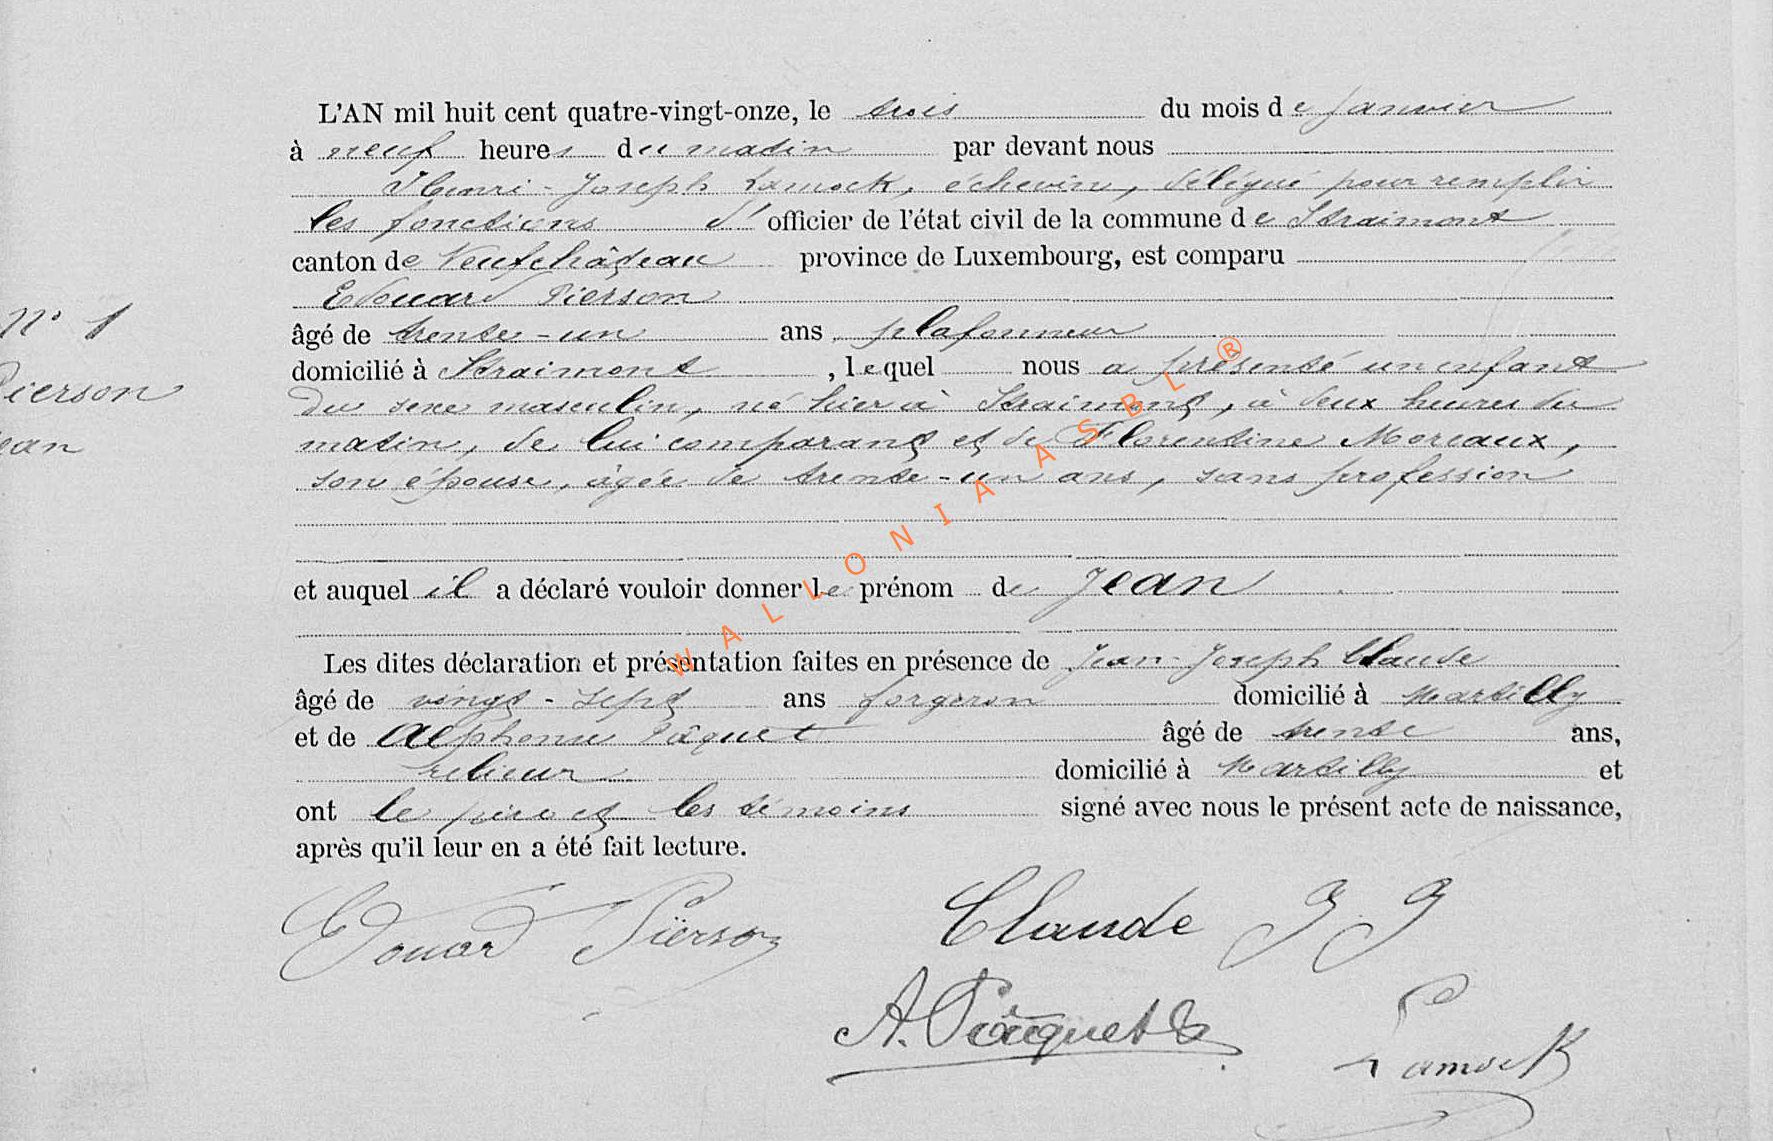 L'AN mil huit cent quatre-vingt-onze, le trois du mois de Janvier
à neuf heures du matin par devant nous
Henri-Joseph Lamock, échevin, délégué pour remplir
les fonctions d'officier de l'état civil de la commune de Straimont
canton de Neufchâteau province de Luxembourg, est comparu
Edouard Pierson
N° 1
âgé de trente-un ans, plafonneur
domicilié à Straimont, lequel nous a présenté un enfant
Pierson
du sexe masculin, né hier à Straimont, à deux heures du
Jean
matin, de lui comparant et de Florentine Moreaux,
son épouse, âgée de trente-un ans, sans profession
et auquel il a déclaré vouloir donner le prénom de Jean
Les dites déclaration et présentation faites en présence de Jean-Joseph Claude
âgé de vingt-sept ans forgeron domicilié à Martilly
et de Alphonse Pâquet âgé de trente ans,
relieur domicilié à Martilly et
ont le père et les témoins signé avec nous le présent acte de naissance,
après qu'il leur en a été fait lecture.
Edouard Pïerson
Claude J J
A. Pâquet
Lamock
WALLONIA ASBL ®